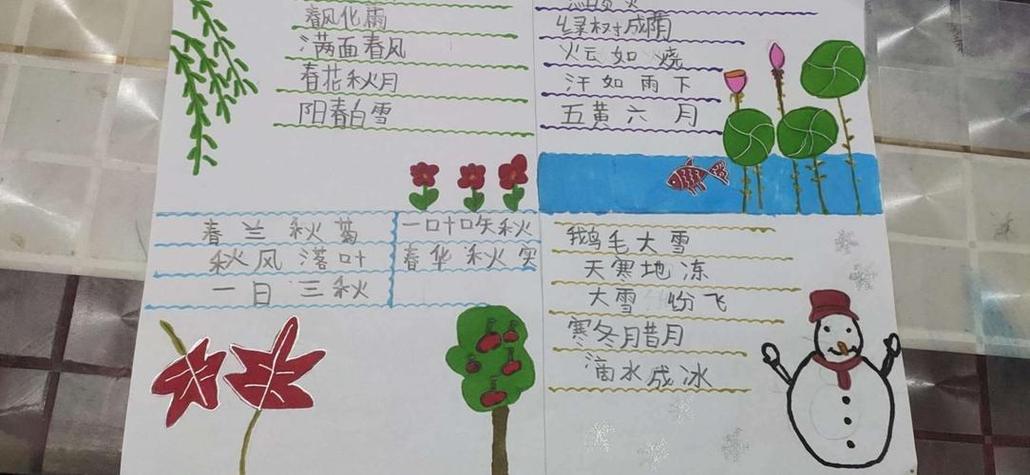 春风化雨
满面春风
春花秋月
阳春白雪
绿树成荫
火云如烧
汗如雨下
五黄六月
春兰秋菊
秋风落叶
一日三秋
一叶知秋
春华秋实
鹅毛大雪
天寒地冻
大雪纷飞
寒冬腊月
滴水成冰